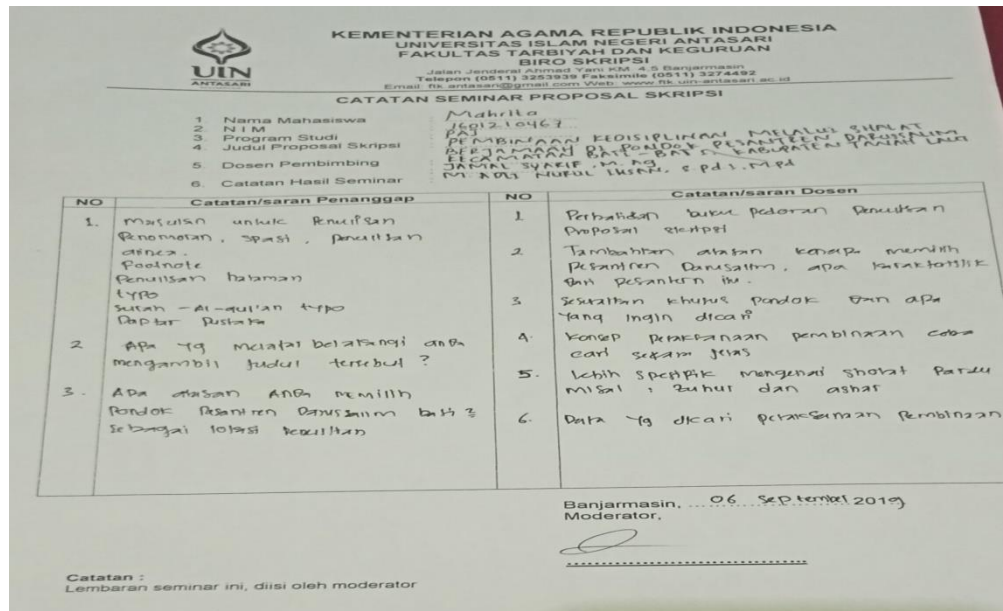 UIN
ANTASARI
KEMENTERIAN AGAMA REPUBLIK INDONESIA
UNIVERSITAS ISLAM NEGERI ANTASARI
FAKULTAS TARBIYAH DAN KEGURUAN
BIRO SKRIPSI
Jalan Jenderal Ahmad Yani KM. 4,5 Banjarmasin
Telepon (0511) 3253939 Faksimile (0511) 3274492
Email: ftk.antasari@gmail.com Web: www.ftk.uin-antasari.ac.id
CATATAN SEMINAR PROPOSAL SKRIPSI
1. Nama Mahasiswa : Mahrita
2. N I M : 1601210467
3. Program Studi : PAI
4. Judul Proposal Skripsi : PEMBINAAN KEDISIPLINAN MELALUI SHALAT
BERJAMAAH DI PONDOK PESANTREN DARUSSALIM
KECAMATAN BATI-BATI KABUPATEN TANAH LAUT
5. Dosen Pembimbing : JAMAL SYARIF, M. Ag
M. ADLI NURUL IHSAN, S.Pd.I, M.Pd
6. Catatan Hasil Seminar
NO Catatan/saran Penanggap
1. Masukan untuk Penulisan
Penomoran, spasi, penulisan
Footnote
Penulisan halaman
typo
surah - Al-qur'an typo
Daptar Pustaka
2 APa yg melatar belakangi anda
mengambil judul tersebut ?
3. APa alasan ANDa memilih
Pondok Pesantren Darussalim bati2
sebagai lokasi Penelitian
NO Catatan/saran Dosen
1 Perbaiki buku pedoman Penulisan
Proposal skripsi
2 Tambahkan alasan kenapa memilih
Pesantren Darusalim, apa karakteristik
dari pesantren itu.
3 Sesuaikan khusus pondok dan apa
yang ingin dicari
4. Konsep pelaksanaan pembinaan coba
cari secara jelas
5. Lebih spesipik mengenai sholat Pardu
misal : zuhur dan ashar
6. Data yg dicari pelaksanaan Pembinaan
Banjarmasin, 06 September 2019
Moderator,
Catatan :
Lembaran seminar ini, diisi oleh moderator